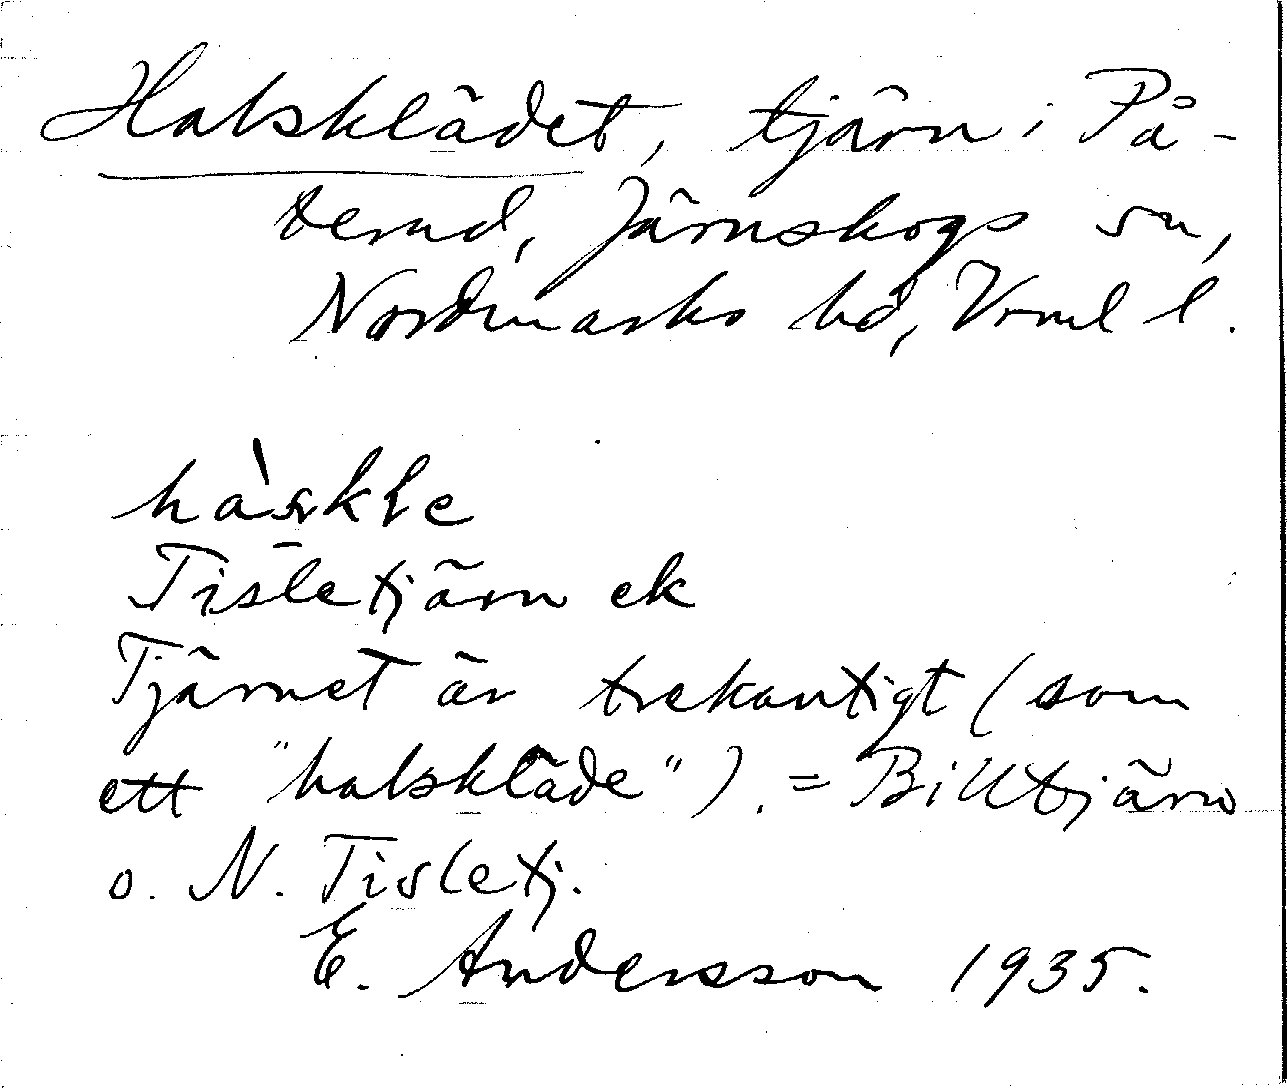 Halsklädet, tjärn i På-
terud, Järnskogs sn,
Nordmarks hd, Vrml l.
hàskle
Tisletjärn ek
Tjärnet är trekantigt (som
ett "halskläde"). = Billtjärn
o. N. Tisletj.
E. Andersson 1935.